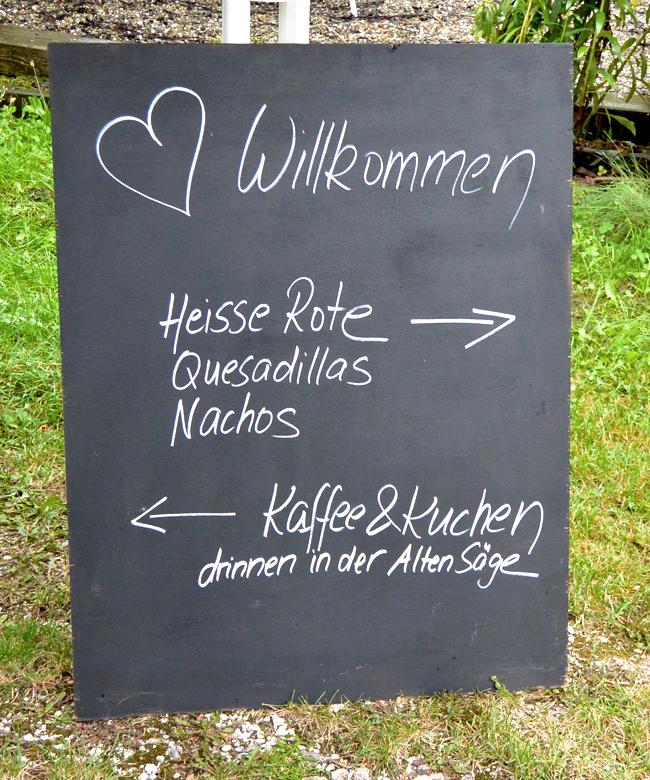 Willkommen
Heisse Rote
Quesadillas
Nachos
Kaffee & Kuchen
drinnen in der Alten Säge